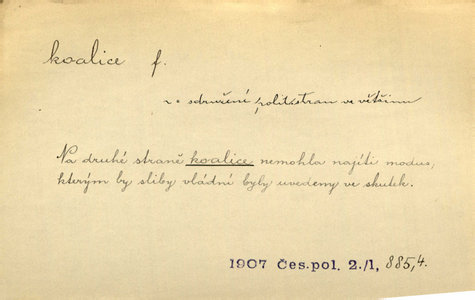 koalice f.
sdružení polit. stran ve většinu
Na druhé straně koalice nemohla najíti modus,
kterým by sliby vládní byly uvedeny ve skutek.
1907 Čes. pol. 2./1, 885,4.